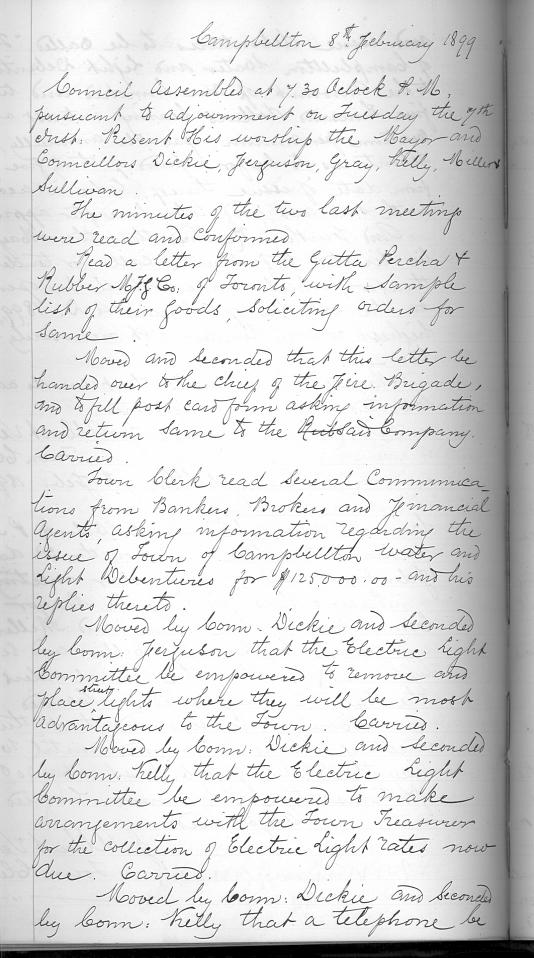 Campbellton 8th February 1899
Council Assembled at 7.30 Oclock P.M.
pursuant to adjournment on Tuesday the 7th
Inst: Present His worship the Mayor and
Councillors Dickie, Ferguson, Gray, Kelly, Miller &
Sullivan.
The minutes of the two last meetings
were read and confirmed
Read a letter from the Gutta Percha &
Rubber Mfg Co: of Toronto, with Sample
list of their goods, Soliciting orders for
Same.
Moved and Seconded that this letter be
handed over to the chief of the Fire Brigade,
and to fill post card form asking information
and return Same to the Said Company.
Carried.
Town Clerk read Several Communica
tions from Bankers, Brokers and Financial
Agents, asking information regarding the
issue of Town of Campbellton Water and
Light Debentures for $125000.00 - and his
replies thereto.
Moved by Conn: Dickie and seconded
by Conn: Ferguson that the Electric Light
Committee be empowered to remove and
place street lights where they will be most
advantageous to the Town. Carried.
Moved by Conn: Dickie and Seconded
by Conn: Kelly that the Electric Light
Committee be empowered to make
arrangements with the Town Treasurer
for the collection of Electric Light rates now
due. Carried.
Moved by Conn: Dickie and Seconded
by Conn: Kelly that a telephone be